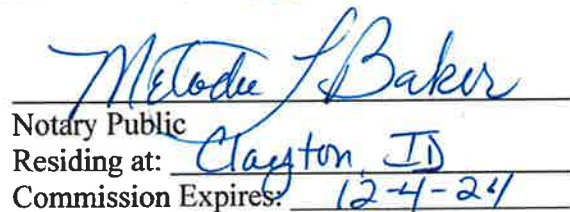 Melodie L Baker
Notary Public
Residing at: Clayton, ID
Commission Expires: 12-4-24